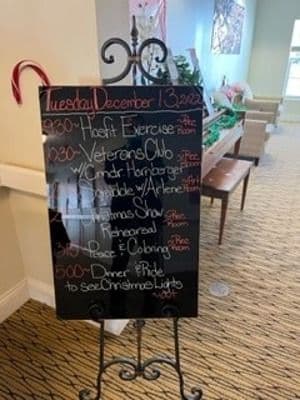 Tuesday December 13, 2022
9:30~ Hasfit Exercise ~Rec Room
10:30~ Veterans Club ~Rec Room
w/Cmdr Harbarger
w/Arlene ~Rec Room
Christmas Show ~Rec Room
Rehearsal
3:15 Peace & Coloring ~Rec Room
5:00~ Dinner & Ride
to see Christmas Lights